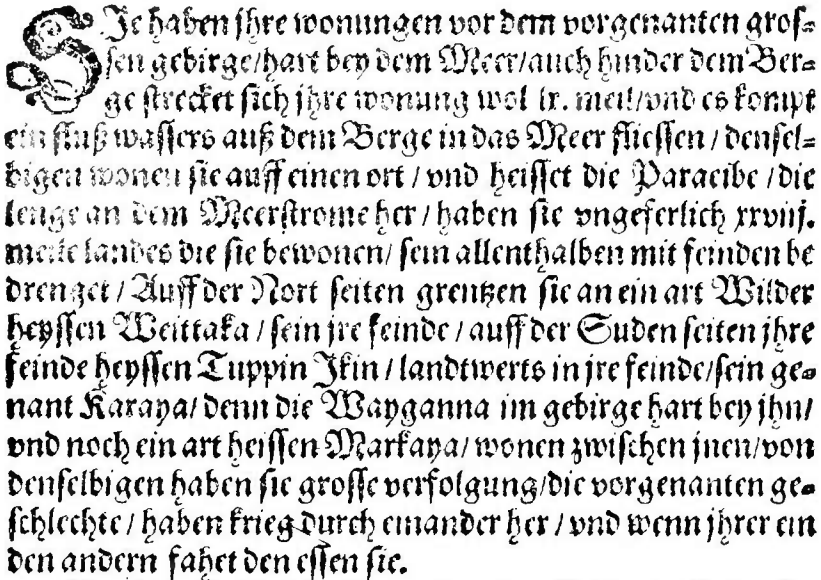 SIe haben jhre wonungen vor dem vorgenanten gros⸗
sen gebirge/hart bey dem Meer/auch hinder dem Ber⸗
ge strecket sich jhre wonung wol lx. meil/vnd es kompt
ein fluß wassers auß dem Berge in das Meer fliessen / densel⸗
bigen wonen sie auff einen ort / vnd heisset die Paraeibe / die
lenge an dem Meerstrome her / haben sie vngeferlich xxviij.
meile landes die sie bewonen/ sein allenthalben mit feinden be
drenget / Auff der Nort seiten grentzen sie an ein art Wilder
heyssen Weittaka / sein jre feinde / auff der Suden seiten jhre
feinde heyssen Tuppin Jkin / landtwerts in jre feinde/sein ge⸗
nant Karaya/ denn die Wayganna im gebirge hart bey jhn/
vnd noch ein art heissen Markaya/ wonen zwischen jnen/von
denselbigen haben sie grosse verfolgung/die vorgenanten ge⸗
schlechte / haben krieg durch einander her / vnd wenn jhrer ein
den andern fahet den essen sie.